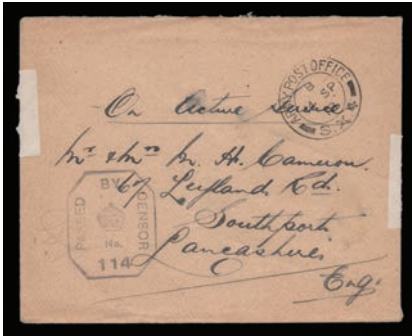 ARMY POST OFFICE
S.X.
On Active service
Mr & Mrs M. H. Cameron.
67 Leyland Rd.
Southport
Lancashire
Eng.
PASSED BY CENSOR
No.
114